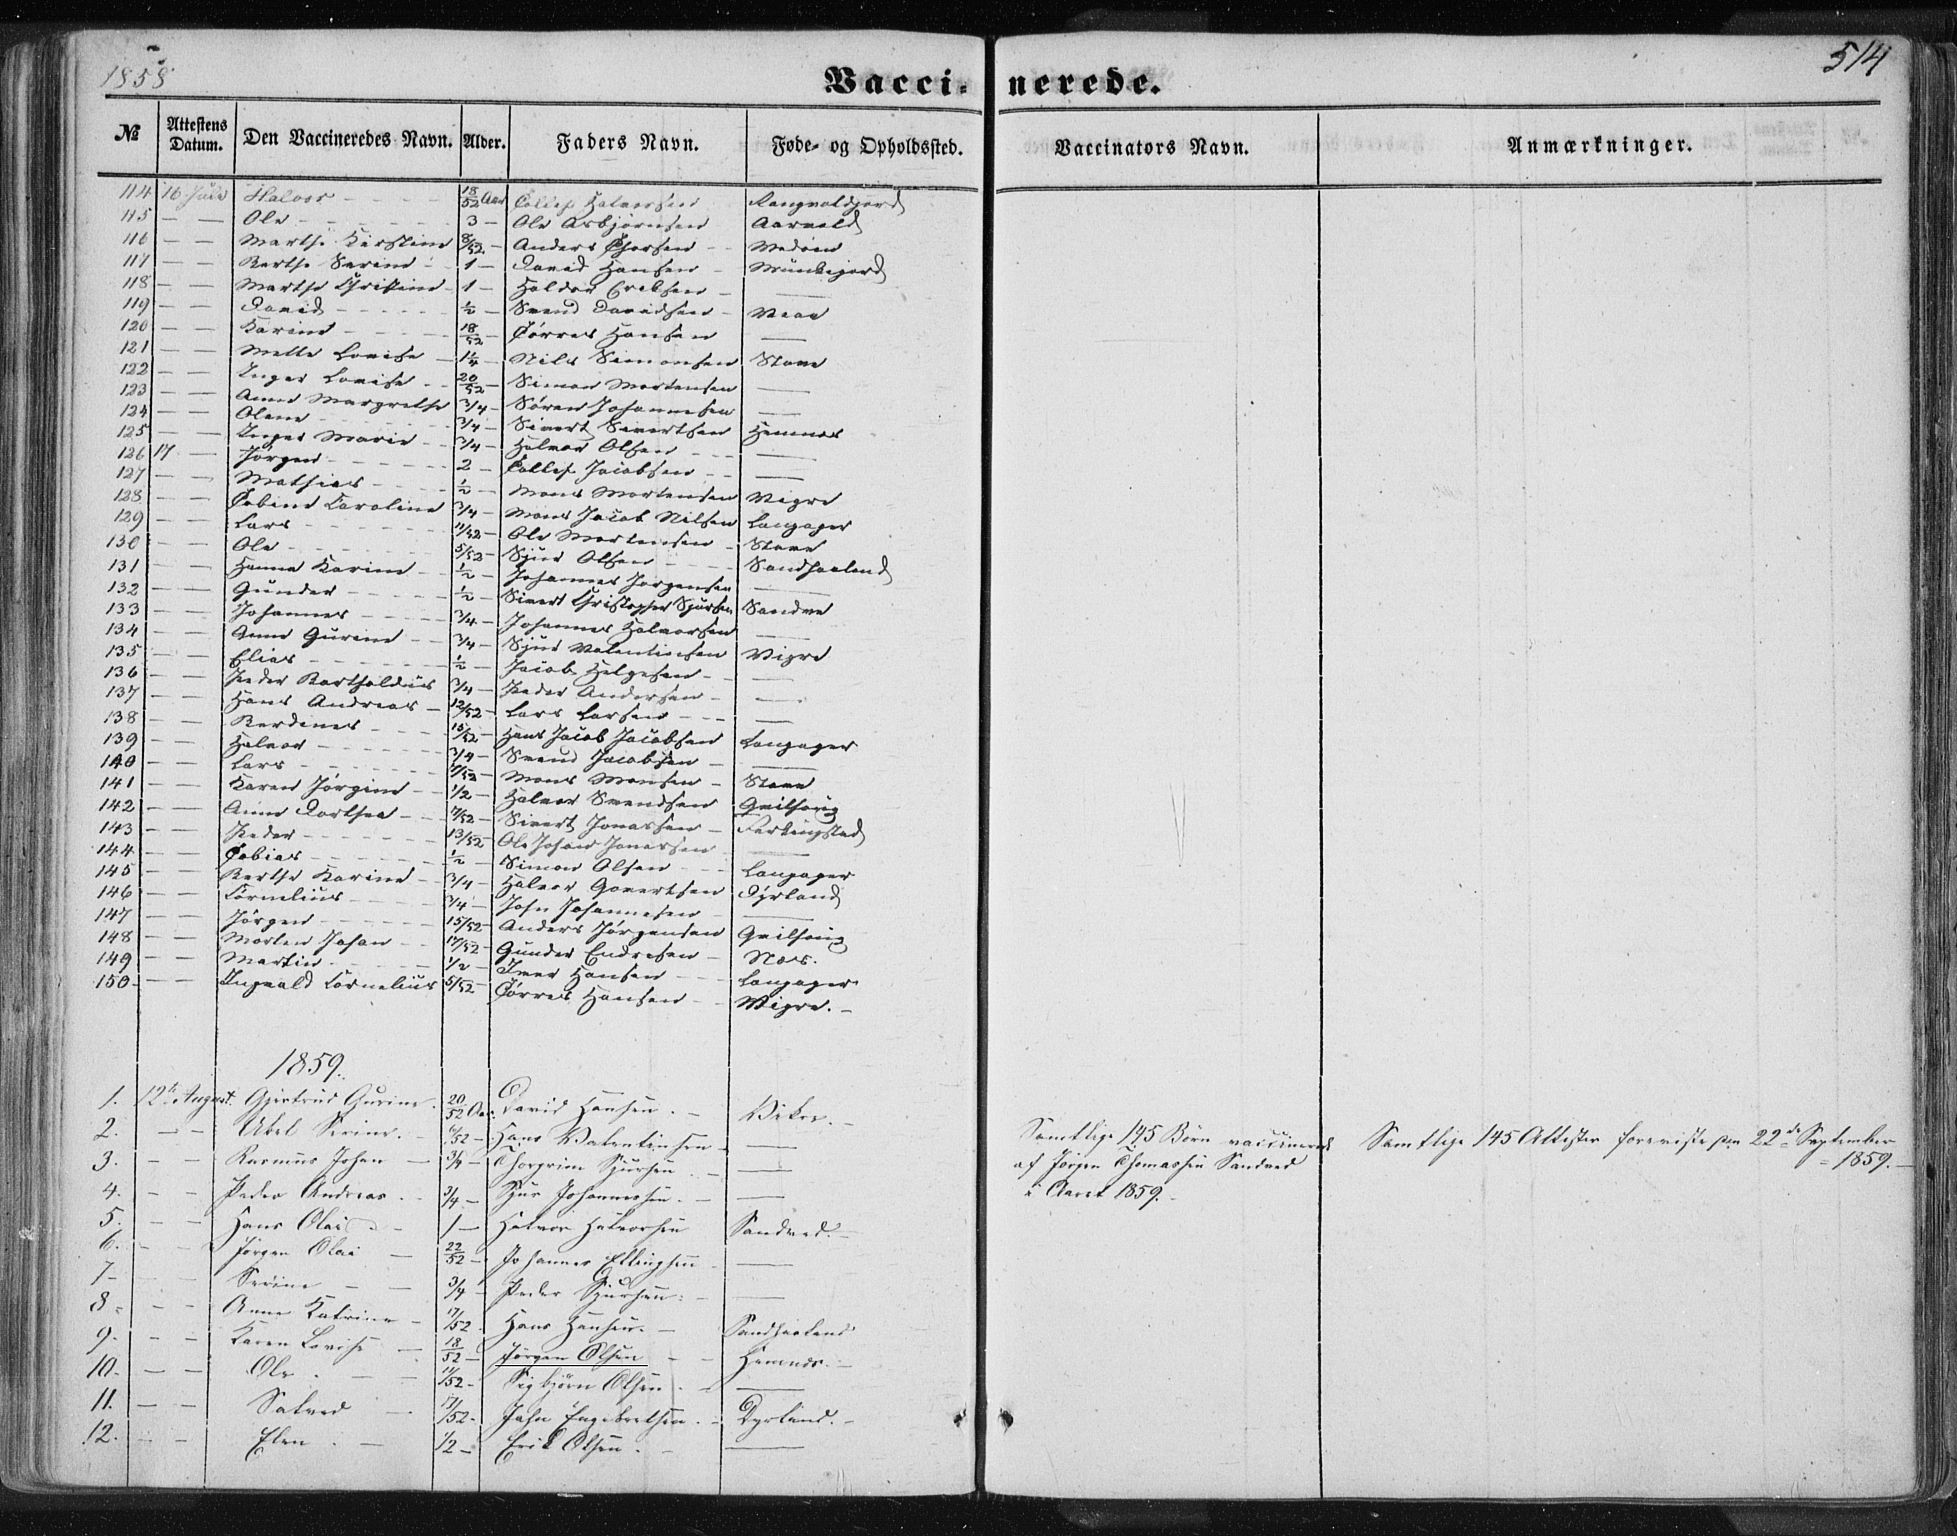 1858
514
Vacci- nerede.
№ Attestens Datum. Den Vaccineredes Navn. Alder. Faders Navn. Føde- og Opholdssted. Vaccinators Navn. Anmærkninger.
114 16 Julie Halvor 18/52 Aar Tollef Halvorsen Rangvoldjord
115 — — Ole 3 — Ole Asbjørnsen Aarvold
116 — — Marthe Kirstine 8/52 — Anders Thorsen
117 — — Berthe Serine 1 — David Hansen Munkejord
118 — — Marthe Christine 1 — Haldor Eriksen —
119 — — David 1/2 — Svend Davidsen
120 — — Karine 18/52 Tørres Hansen —
121 — — Mette Lovise 1 1/4 — Nils Simonsen Stave
122 — — Inger Lovise 20/52 — Simon Mortensen —
123 — — Anne Margrethe 3/4 — Søren Johannesen —
124 — — Olene 3/4 — Sivert Sivertsen Hemnes
125 — — Inger Marie 3/4 — Halvor Olsen —
126 17 — Jørgen 2 — Tollef Jacobsen —
127 — — Mathias 1/2 — Mons Mortensen Vigre
128 — — Tobine Caroline 3/4 — Mons Jacob Nilsen Langager
129 — — Lars 11/52 — Ole Mortensen Stave
130 — — Ole 5/52 — Sjur Olsen Sandhaaland
131 — — Hanna Karine 1/2 — Johannes Jørgensen —
132 — — Gunder 1/2 — Sivert Christopher Sjursen Sandve
133 — — Johannes 3/4 — Johannes Halvorsen —
134 — — Anne Gurine 3/4 — Sjur Valentinsen Vigre
135 — — Elias 1/2 — Jacob Helgesen —
136 — — Peder Bartholdus 3/4 — Peder Andersen —
137 — — Hans Andreas 12/52 — Lars Larsen —
138 — — Berdines 15/52 Hans Jacob Jacobsen Langager
139 — — Halvor 3/4 — Svend Jacobsen —
140 — — Lars 7/52 — Mons Monsen Stave
141 — — Karen Jørgine 1/2 — Halvor Svendsen Qvilhoug
142 — — Anne Dorthea 17/52 — Sivert Jonassen Ferkingstad
143 — — Peder 13/52 Ole Johan Jonassen —
144 — — Tobias 1/2 — Simon Olsen Langager
145 — — Berthe Karine 3/4 — Halvor Govertsen Dyrland
146 — — Cornelius 3/4 — John Johannesen —
147 — — Jørgen 15/52 — Anders Jørgensen Qvilhoug
148 — — Morten Johan 17/52 — Gunder Endresen Næs.
149 — — Martin 1/2 — Iver Hansen Langager
150 — — Ingvald Cornelius 5/52 — Tørres Hansen Vigre. —
1859.
1. 12te August. Gjertrud Gurine. 20/52 Aar. David Hansen. — Vikre. —
2. — — Abel Serine. 6/52 — Hans Valentinsen —
3. — — Rasmus Johan 3/4 — Thorgrim Sjursen —
4. — — Peder Andreas 3/4 — Sjur Johannesen. —
5. — — Hans Olai 1 — Halvor Halvorsen Sandved. —
6. — — Jørgen Olai 22/52 — Johannes Ellingsen —
7 — — — Serine 3/4 — Peder Sjursen. —
8 — — Anne Katrine 17/52 Hans Hansen. — Sandhaaland
9. — — Karen Lovise 18/52 — Jørgen Olsen — Hemnæs. —
10. — — Ole 11/52 — Sigbjørn Olsen. —
11. — — Salved 17/52 — John Engebretsen. Dyrland. —
12. — — Elen. 1/2 — Erik Olsen. —
Samtlige 145 Børn vaccinerede
af Jørgen Thomassen Sandved
i Aaret 1859. —
Samtlige 145 Attester foreviste pn 22de September
1859. —